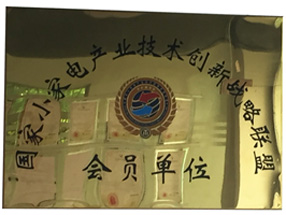 国家小家电产业技术创新战略联盟
会员单位